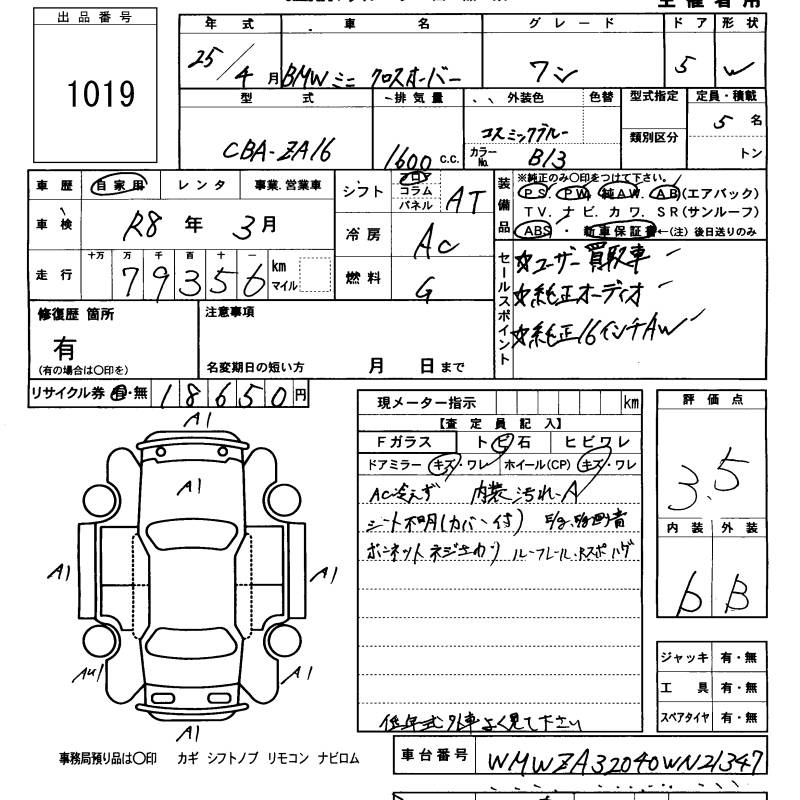 出品番号
1019
年式 車名 グレード ドア 形状
25/4月 BMWミニ クロスオーバー ワン 5 W
型式 排気量 外装色 色替 型式指定 定員・積載
CBA-ZA16 1600 C.C. コスミックブルー 類別区分 5名
カラーNo. B13 トン
車歴 自家用 レンタ 事業.営業車
車検 R8年 3月
十万 万 千 百 十 一
走行 79356 km マイル
シフト フロ コラム パネル AT
冷房 AC
燃料 G
装備品 ※純正のみ〇印をつけて下さい。
PS. PW. 純AW. AB(エアバック)
TV. ナビ. カワ. SR(サンルーフ)
ABS・新車保証書←(注)後日送りのみ
セールスポイント
☆ユーザー買取車
☆純正オーディオ
☆純正16インチAW
修復歴 箇所
有
(有の場合は〇印を)
注意事項
名変期日の短い方 月 日まで
リサイクル券 有・無 18650円
現メーター指示 km
【査定員記入】
Fガラス トビ石 ヒビワレ
ドアミラー キズ・ワレ ホイール(CP) キズ・ワレ
AC冷えず 内装汚れ-A
シート不明(カバー付)
ボンネットネジさわり ルーフレール・Rスポハゲ
低年式外車よく見て下さい
評価点
3.5
内装 外装
b B
ジャッキ 有・無
工具 有・無
スペアタイヤ 有・無
A1
A1
A1 A1
AU1 A1
A1
事務局預り品は〇印 カギ シフトノブ リモコン ナビロム
車台番号 WMWZA32040WN21347